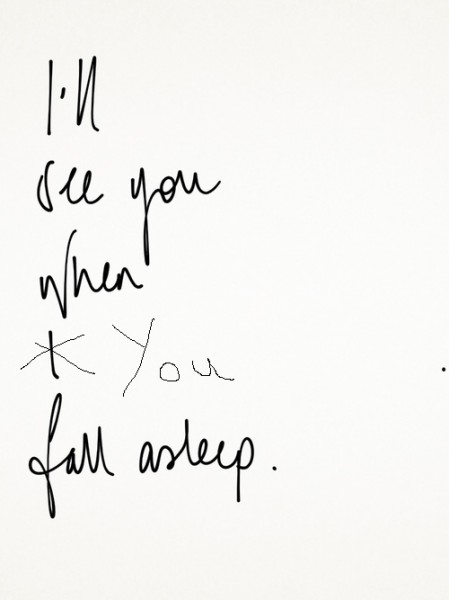 I'll
see you
when
You
fall asleep.